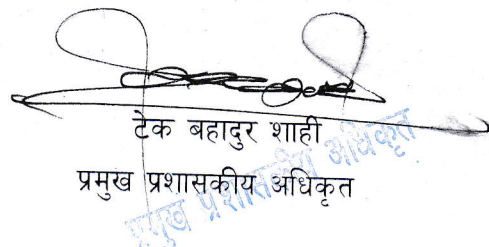 टेक बहादुर शाही
प्रमुख प्रशासकीय अधिकृत
प्रमुख प्रशासकीय अधिकृत